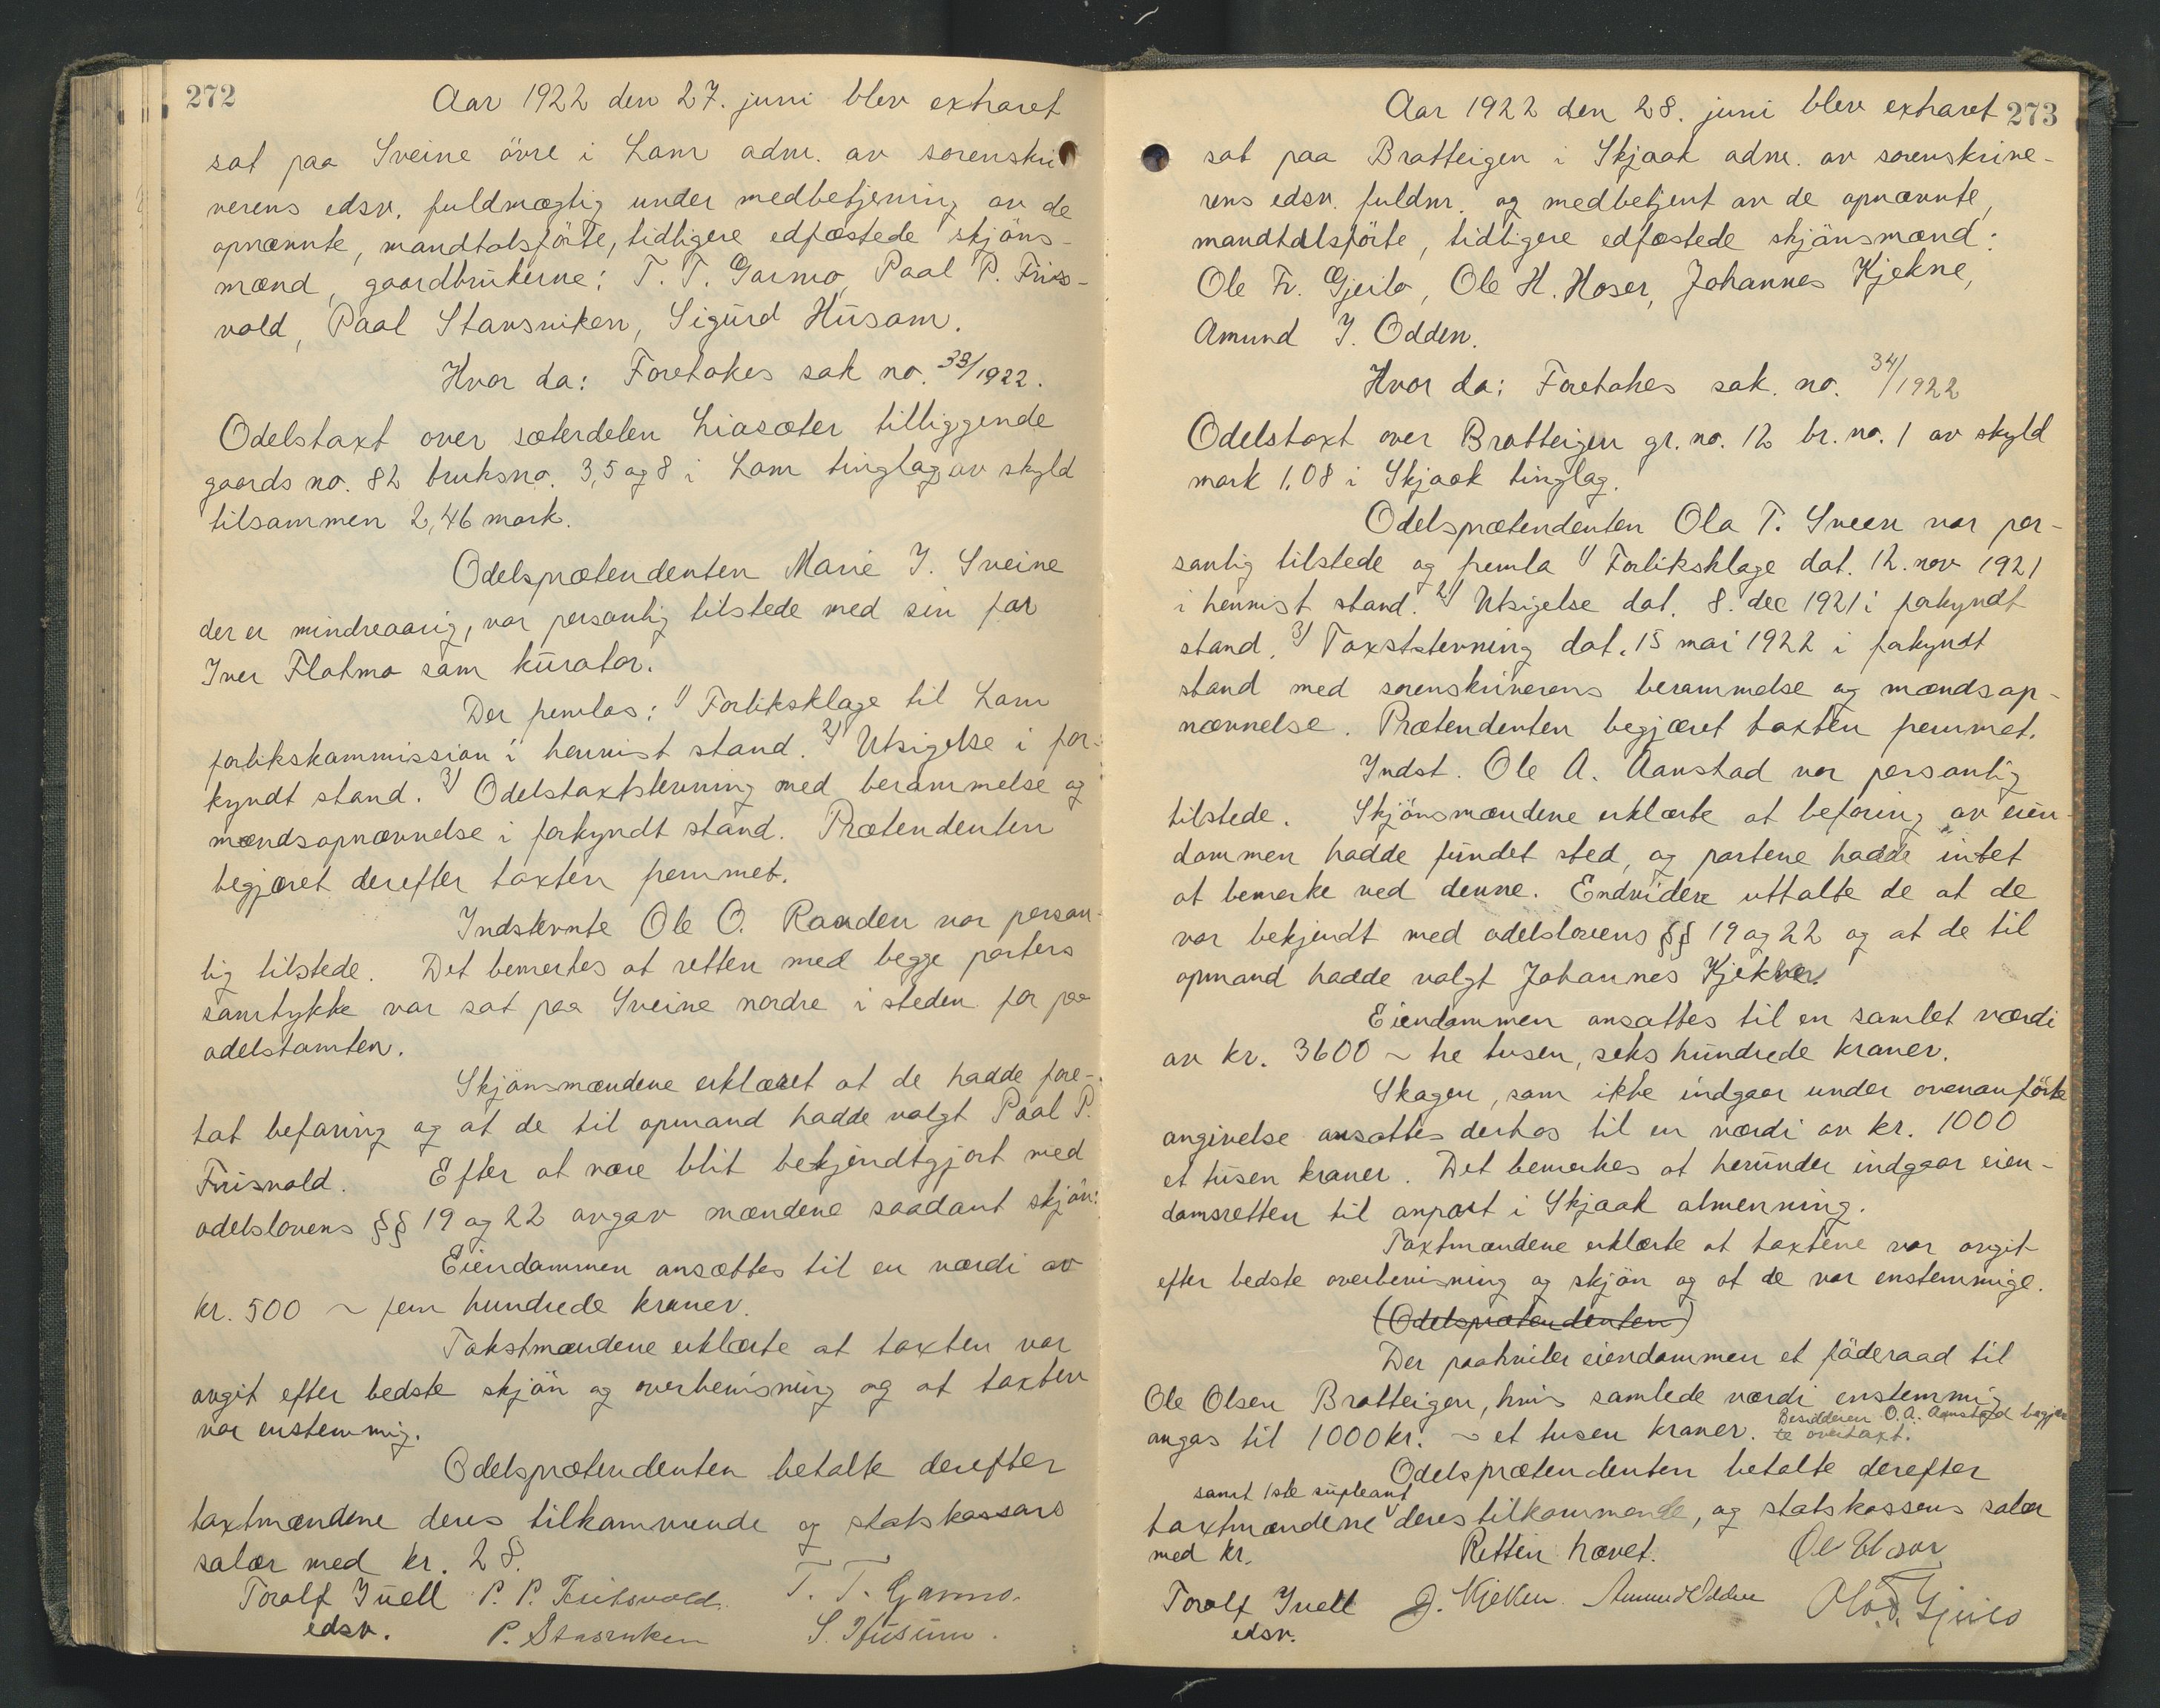 272
Aar 1922 den 27. juni blev extraret
sat paa Sveine övre i Lom adm. av sorenskri
verens edsv. fuldmægtig under medbetjening av de
opnævnte, mandtalsförte, tidligere edfæstede skjöns-
mænd, gaardbrukerne: T. T. Garmo, Paal P. Friis-
vold, Paal Stamsviken, Sigurd Husom.
Hvor da: Foretokes sak no. 33/1922.
Odelstaxt over sæterdelen Liasæter tilliggende
gaards no. 82 bruksno. 3, 5 og 8 i Lom tinglag av skyld
tilsammen 2,46 mark.
Odelsprætendenten Marie I. Sveine
der er mindreaarig, var personlig tilstede med sin far
Iver Flotmo som kurator.
Der fremlas: 1) Forliksklage til Lom
forlikskommission i henvist stand. 2) Utsigelse i for-
kyndt stand. 3) Odelstaxtstevning med berammelse og
mændsopnævnelse i forkyndt stand. Prætendenten
begjæret derefter taxten fremmet.
Indstevnte Ole O. Raanden var person-
lig tilstede. Det bemerkes at retten med begge parters
samtykke var sat paa Sveine nordre i steden for paa
odelstomten.
Skjönsmændene erklæret at de hadde fore-
tat befaring og at de til opmand hadde valgt Paal P.
Friisvold. Efter at være blit bekjendtgjort med
odelslovens §§ 19 og 22 avgav mændene saadant skjön:
Eiendommen ansættes til en værdi av
kr. 500 ~ fem hundrede kroner.
Takstmændene erklærte at taxten var
avgit efter bedste skjön og overbevisning og at taxten
var enstemmig.
Odelsprætendenten betalte derefter
taxtmændene deres tilkommende og statskassens
salær med kr. 28.
Toralf Juell P. P. Friisvold. T. T. Garmo.
edsv. P. Stamsviken S. Husum.
Aar 1922 den 28. juni blev extraret 273
sat paa Bratteigen i Skjaak adm. av sorenskrive-
rens edsv. fuldm. og medbetjent av de opnævnte,
mandtalsförte, tidligere edfæstede skjönsmænd:
Ole Fr. Gjeilo, Ole H. Hoser, Johannes Kjekne,
Amund I. Odden.
Hvor da: Foretokes sak. no. 34/1922
Odelstaxt over Bratteigen gr. no. 12 br. no. 1 av skyld
mark 1,08 i Skjaak tinglag.
Odelsprætendenten Ola T. Sveen var per-
sonlig tilstede og fremla 1) Forliksklage dat. 12. nov 1921
i henvist stand. 2) Utsigelse dat. 8. dec 1921 i forkyndt
stand. 3) Taxststevning dat. 15 mai 1922 i forkyndt
stand med sorenskriverens berammelse og mændsop-
nævnelse. Prætendenten begjæret taxten fremmet.
Indst. Ole A. Aanstad var personlig
tilstede. Skjönsmændene erklærte at befaring av eien-
dommen hadde fundet sted, og partene hadde intet
at bemerke ved denne. Endvidere uttalte de at de
var bekjendt med odelslovens §§ 19 og 22 og at de til
opmand hadde valgt Johannes Kjekne.
Eiendommen ansattes til en samlet værdi
av kr. 3600 ~ tre tusen, seks hundrede kroner.
Skogen, som ikke indgaar under ovenanförte
angivelse ansattes derhos til en værdi av kr. 1000
et tusen kroner. Det bemerkes at herunder indgaar eien-
domsretten til anpart i Skjaak almenning.
Taxtmændene erklærte at taxtene var avgit
efter bedste overbevisning og skjön og at de var enstemmige.
(Odelsprætendenten)
Der paahviler eiendommen et föderaad til
Ole Olsen Bratteigen, hvis samlede værdi enstemmig
angas til 1000 kr. ~ et tusen kroner. Besidderen O.A. Aanstad begjær
te overtaxt.
Odelsprætendenten betalte derefter
samt 1ste supleant
taxtmændene deres tilkommende, og statskassens salær
med kr. Retten hævet. Ole Hoser
Toralf Juell J. Kjekne. Amund Odden Ola F. Gjeilo
edsv.